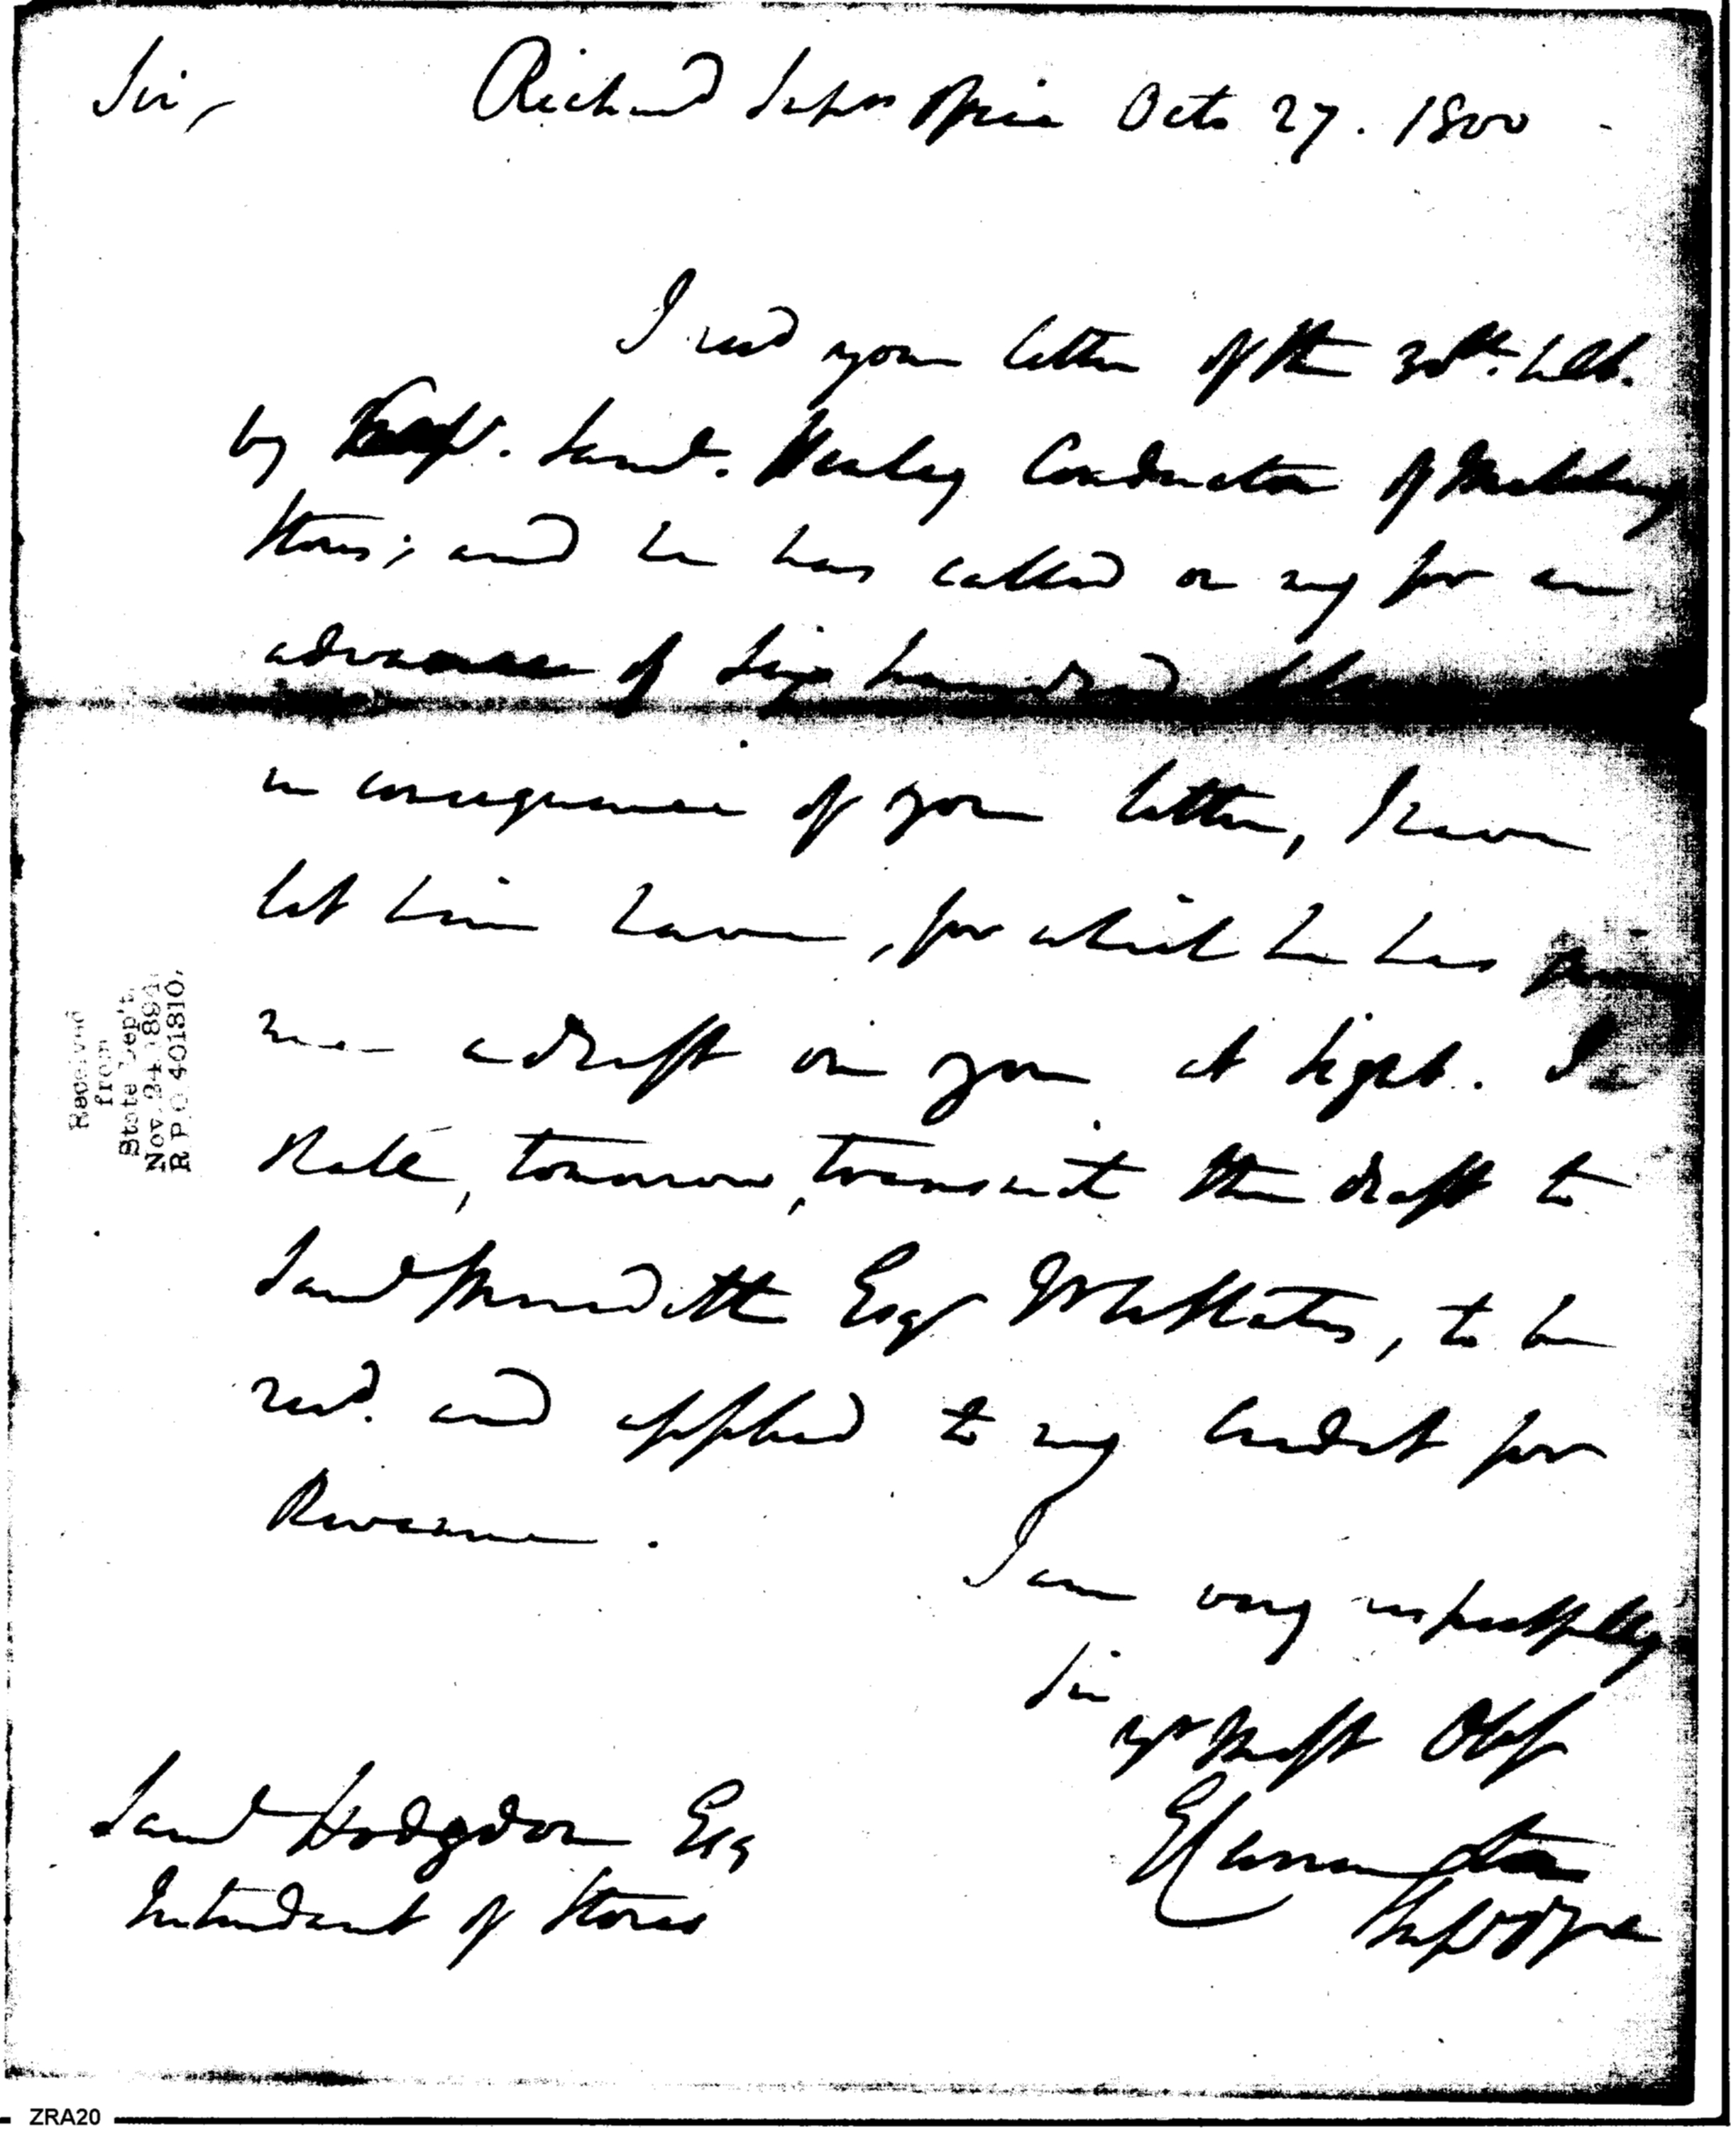 Sir, Richmond Suprs Office Octo 27. 1800
I recd your letter of the 30th. Ulto.
by Saml. Henley Conductor of Military
Stores; and he has called on me for an
advance of Six hundred
in consequence of your letter, I have
let him have, for which he has given
me a draft on you at sight. I
shall, tomorrow, transmit the draft to
Saml Meredith Esqr to be
recd. and applied to my credit for
Revenue.
I am very respectfully
Sir
yr Most Obt
E Carrington
Saml Hodgdon Esq
Intendant of Stores
Received
from
State Dep't.
Nov. 24, 1894
R.P.O 401810.
ZRA20